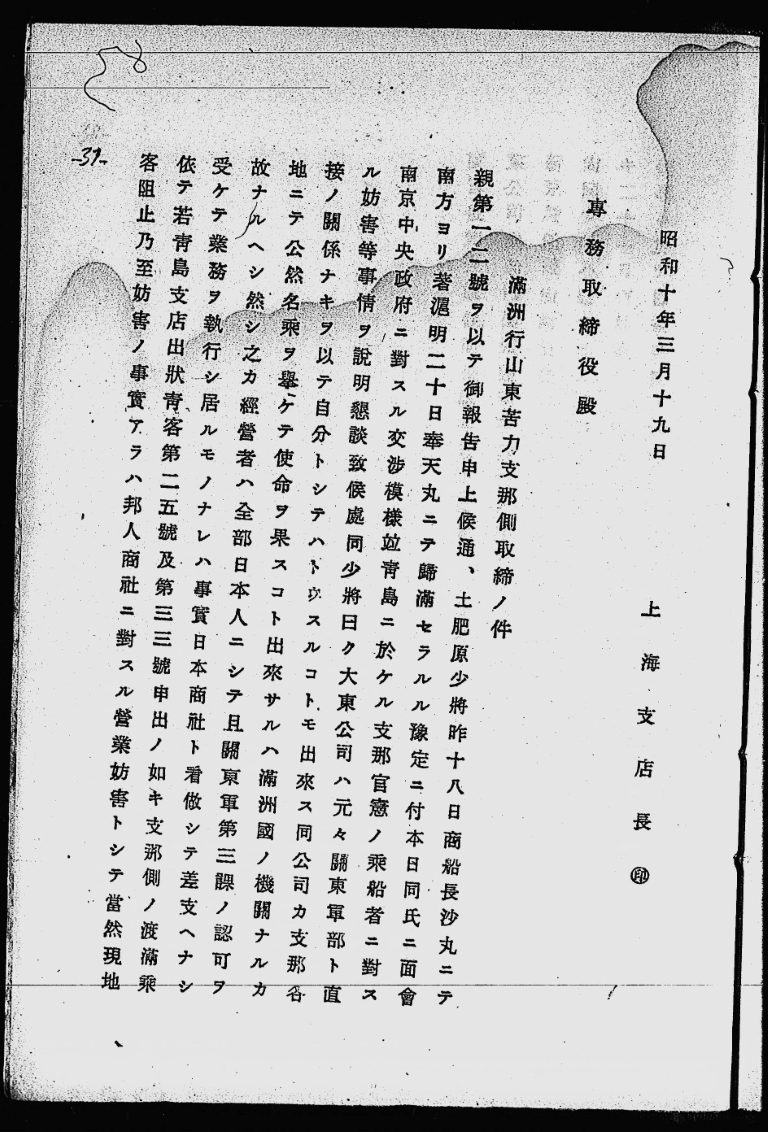 昭和十年三月十九日
上海支店長㊞
專務取締役殿
滿洲行山東苦力支那側取締ノ件
親第一二號ヲ以テ御報告申上候通、土肥原少將昨十八日商船長沙丸ニテ
南方ヨリ著滬明二十日奉天丸ニテ歸滿セラルル豫定ニ付本日同氏ニ面會
南京中央政府ニ對スル交渉模樣竝青島ニ於ケル支那官憲ノ乘船者ニ對ス
ル妨害等事情ヲ說明懇談致候處同少將曰ク大東公司ハ元々關東軍部ト直
接ノ關係ナキヲ以テ自分トシテハトウスルコトモ出來ス同公司カ支那各
地ニテ公然名乘ヲ擧ケテ使命ヲ果スコト出來サルハ滿洲國ノ機關ナルカ
故ナルヘシ然シ之カ經營者ハ全部日本人ニシテ且關東軍第三課ノ認可ヲ
受ケテ業務ヲ執行シ居ルモノナレハ事實日本商社ト看做シテ差支ヘナシ
依テ若青島支店出狀青客第二五號及第三三號申出ノ如キ支那側ノ渡滿乘
客阻止乃至妨害ノ事實アラハ邦人商社ニ對スル營業妨害トシテ當然現地
-31-